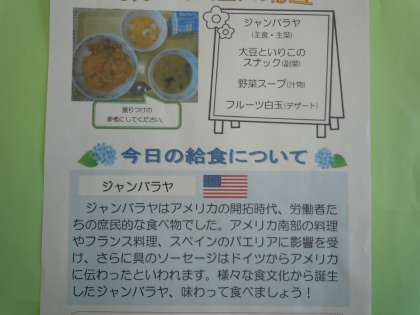 ジャンバラヤ
(主食・主菜)
大豆といりこの
スナック(副菜)
野菜スープ(汁物)
フルーツ白玉(デザート)
盛りつけの
参考にしてください。
今日の給食について
ジャンバラヤ
ジャンバラヤはアメリカの開拓時代、労働者た
ちの庶民的な食べ物でした。アメリカ南部の料理
やフランス料理、スペインのパエリアに影響を受
け、さらに具のソーセージはドイツからアメリカ
に伝わったといわれます。様々な食文化から誕生
したジャンバラヤ、味わって食べましょう！